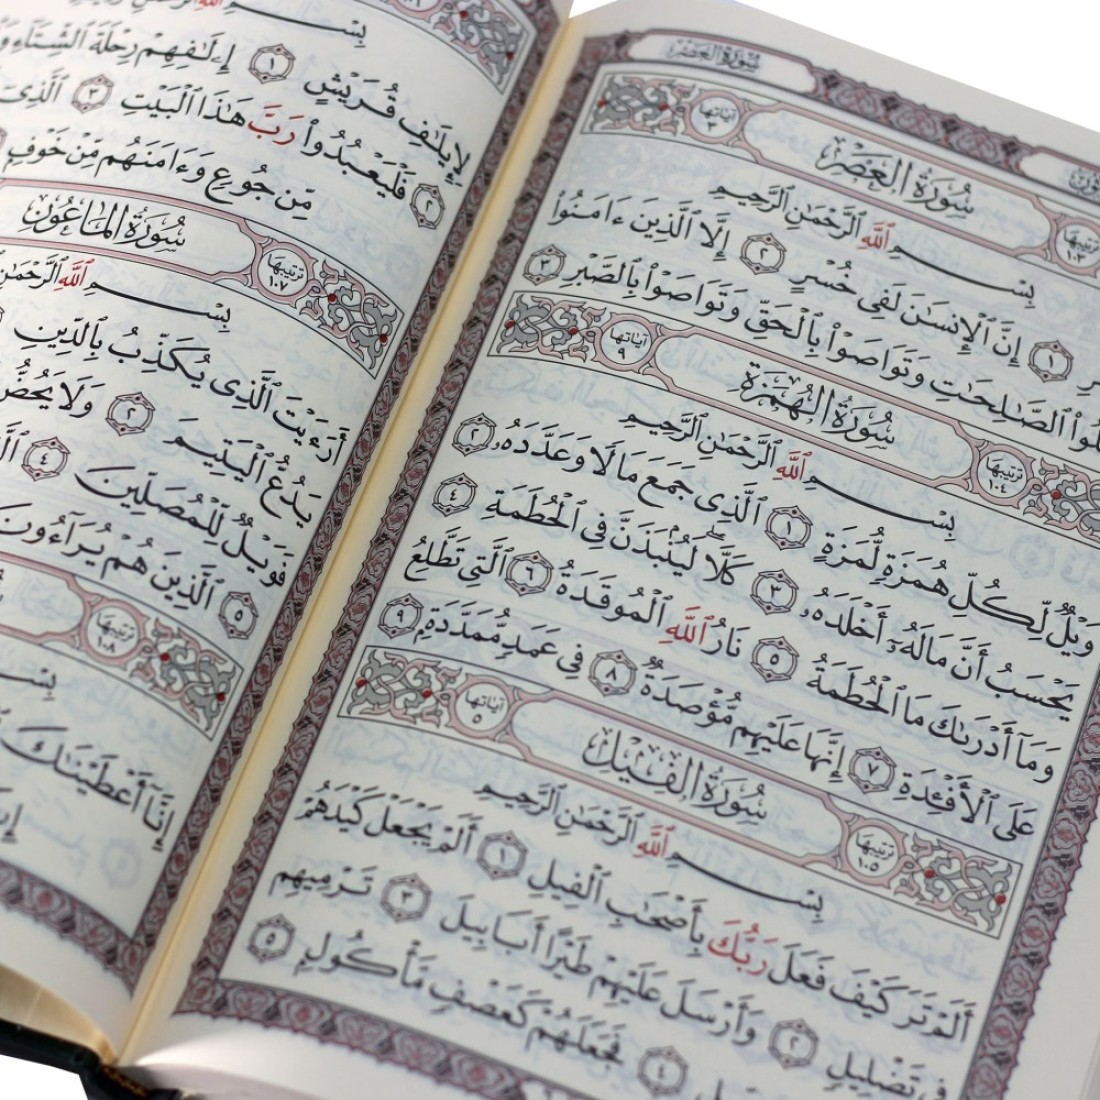 سُورَةُ العَصْرِ
آيَاتُهَا ٣ سُورَةُ العَصْرِ تَرْتِيبُهَا ١٠٣
بِسْمِ ٱللَّهِ ٱلرَّحْمَٰنِ ٱلرَّحِيمِ
١ إِنَّ ٱلْإِنسَٰنَ لَفِى خُسْرٍ ٢ إِلَّا ٱلَّذِينَ ءَامَنُوا۟
ٱلصَّٰلِحَٰتِ وَتَوَاصَوْا۟ بِٱلْحَقِّ وَتَوَاصَوْا۟ بِٱلصَّبْرِ ٣
آيَاتُهَا ٩ سُورَةُ الهُمَزَةِ تَرْتِيبُهَا ١٠٤
بِسْمِ ٱللَّهِ ٱلرَّحْمَٰنِ ٱلرَّحِيمِ
وَيْلٌ لِّكُلِّ هُمَزَةٍ لُّمَزَةٍ ١ ٱلَّذِى جَمَعَ مَالًا وَعَدَّدَهُۥ ٢
يَحْسَبُ أَنَّ مَالَهُۥٓ أَخْلَدَهُۥ ٣ كَلَّا ۖ لَيُنۢبَذَنَّ فِى ٱلْحُطَمَةِ ٤
وَمَآ أَدْرَىٰكَ مَا ٱلْحُطَمَةُ ٥ نَارُ ٱللَّهِ ٱلْمُوقَدَةُ ٦ ٱلَّتِى تَطَّلِعُ
عَلَى ٱلْأَفْـِٔدَةِ ٧ إِنَّهَا عَلَيْهِم مُّؤْصَدَةٌ ٨ فِى عَمَدٍ مُّمَدَّدَةٍۭ ٩
آيَاتُهَا ٥ سُورَةُ الفِيلِ تَرْتِيبُهَا ١٠٥
بِسْمِ ٱللَّهِ ٱلرَّحْمَٰنِ ٱلرَّحِيمِ
أَلَمْ تَرَ كَيْفَ فَعَلَ رَبُّكَ بِأَصْحَٰبِ ٱلْفِيلِ ١ أَلَمْ يَجْعَلْ كَيْدَهُمْ
فِى تَضْلِيلٍ ٢ وَأَرْسَلَ عَلَيْهِمْ طَيْرًا أَبَابِيلَ ٣ تَرْمِيهِم
٤ فَجَعَلَهُمْ كَعَصْفٍ مَّأْكُولٍۭ ٥
بِسْمِ ٱللَّهِ
لِإِيلَٰفِ قُرَيْشٍ ١ إِۦلَٰفِهِمْ رِحْلَةَ ٱلشِّتَآءِ
٢ فَلْيَعْبُدُوا۟ رَبَّ هَٰذَا ٱلْبَيْتِ ٣ ٱلَّذِىٓ
مِّن جُوعٍ وَءَامَنَهُم مِّنْ خَوْفٍۭ
سُورَةُ المَاعُونِ تَرْتِيبُهَا ١٠٧
بِسْمِ ٱللَّهِ ٱلرَّحْمَٰنِ
أَرَءَيْتَ ٱلَّذِى يُكَذِّبُ بِٱلدِّينِ
يَدُعُّ ٱلْيَتِيمَ ٢ وَلَا يَحُضُّ
فَوَيْلٌ لِّلْمُصَلِّينَ ٤
٥ ٱلَّذِينَ هُمْ يُرَآءُونَ
تَرْتِيبُهَا ١٠٨
بِسْمِ
إِنَّآ أَعْطَيْنَٰكَ